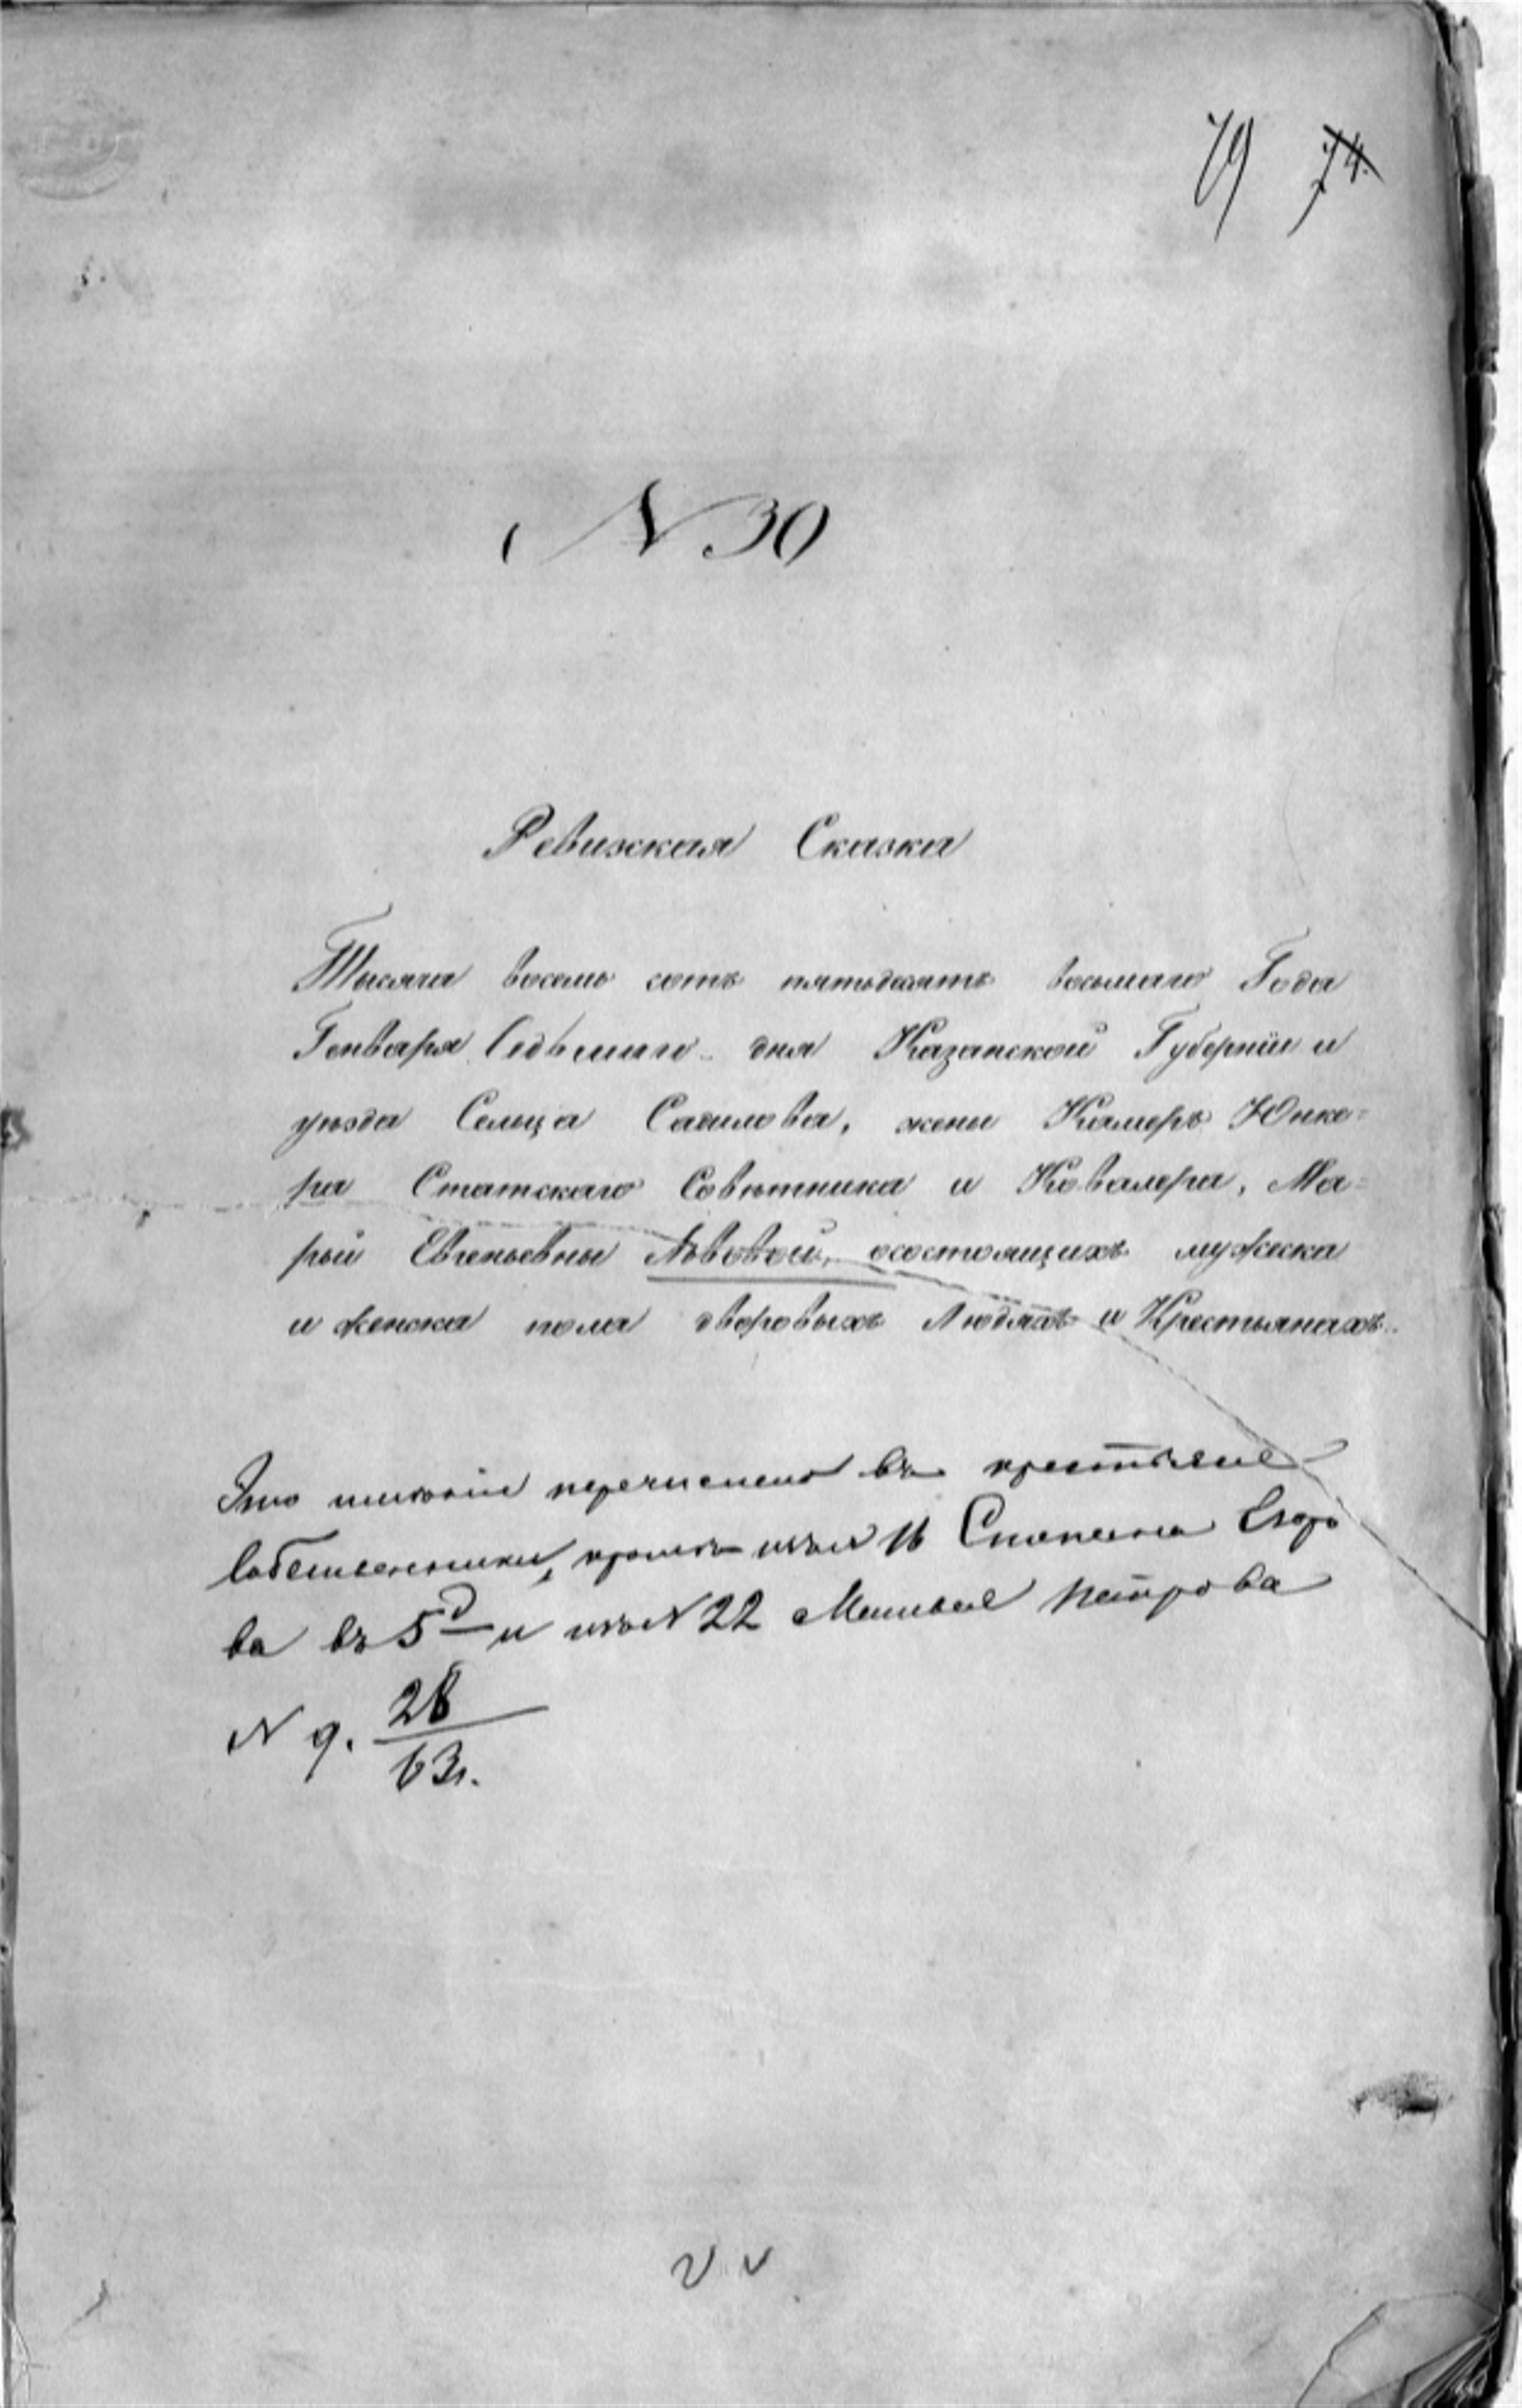 79 74
N 30
Ревизская Сказка
Тысяча восемь сотъ пятьдесятъ восьмаго Года
Генваря Седьмаго дня Казанской Губерніи и
уѣзда Сельца Саилова, жены Камеръ Юнке=
ра Статскаго Совѣтника и Кавалера, Ма=
рьи Евгеньевны Львовой, осостоящихъ мужеска
и женска пола дворовыхъ Людяхъ и Крестьянахъ.
Это имѣніе перечислено въ крестьяне
собственники, кромѣ изъ N 16 Степана Егоро
ва въ 5 д и изъ N 22 Матвея Петрова
N 9. 28
63 г.